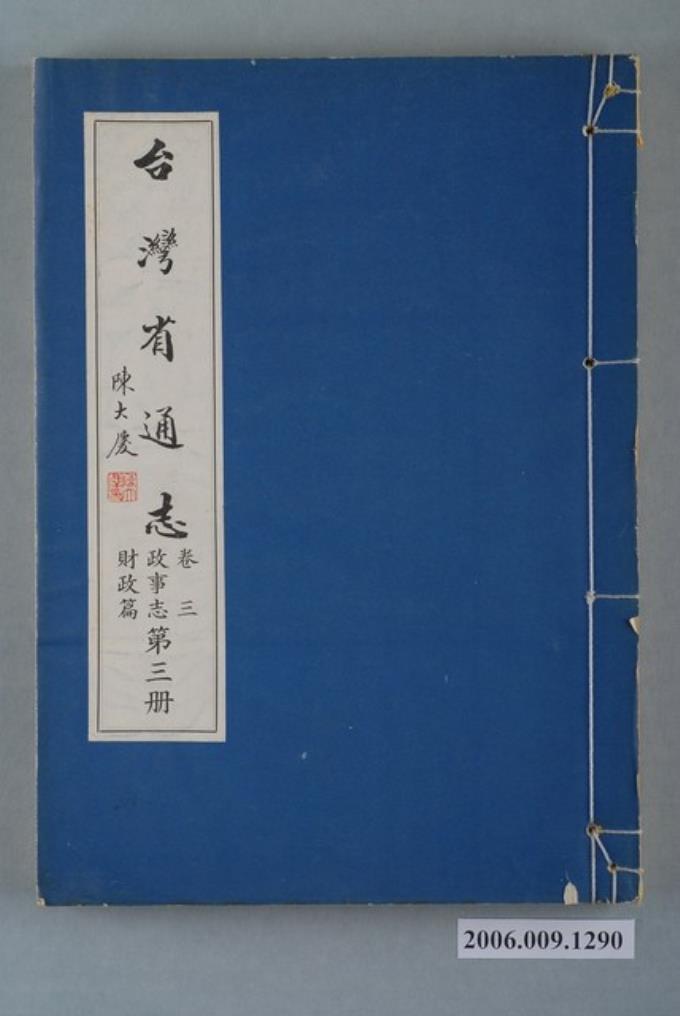 台灣省通志
卷三
政事志第三册
財政篇
陳大慶
2006.009.1290